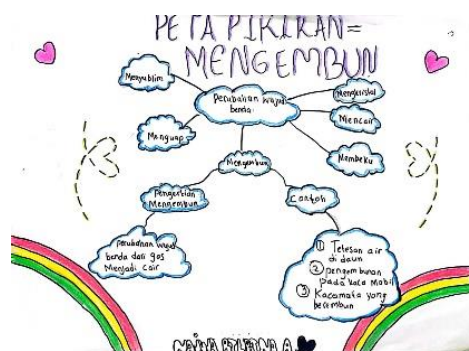 PETA PIKIRAN=
MENGEMBUN
Menyublim
Perubahan wujud
benda
Mengkristal
Mencair
Menguap
Membeku
Mengembun
Pengertian
Mengembun
Contoh
perubahan wujud
benda dari gas
Menjadi cair
① Tetesan air
di daun
② pengembunan
pada kaca Mobil
③ Kacamata yang
berembun